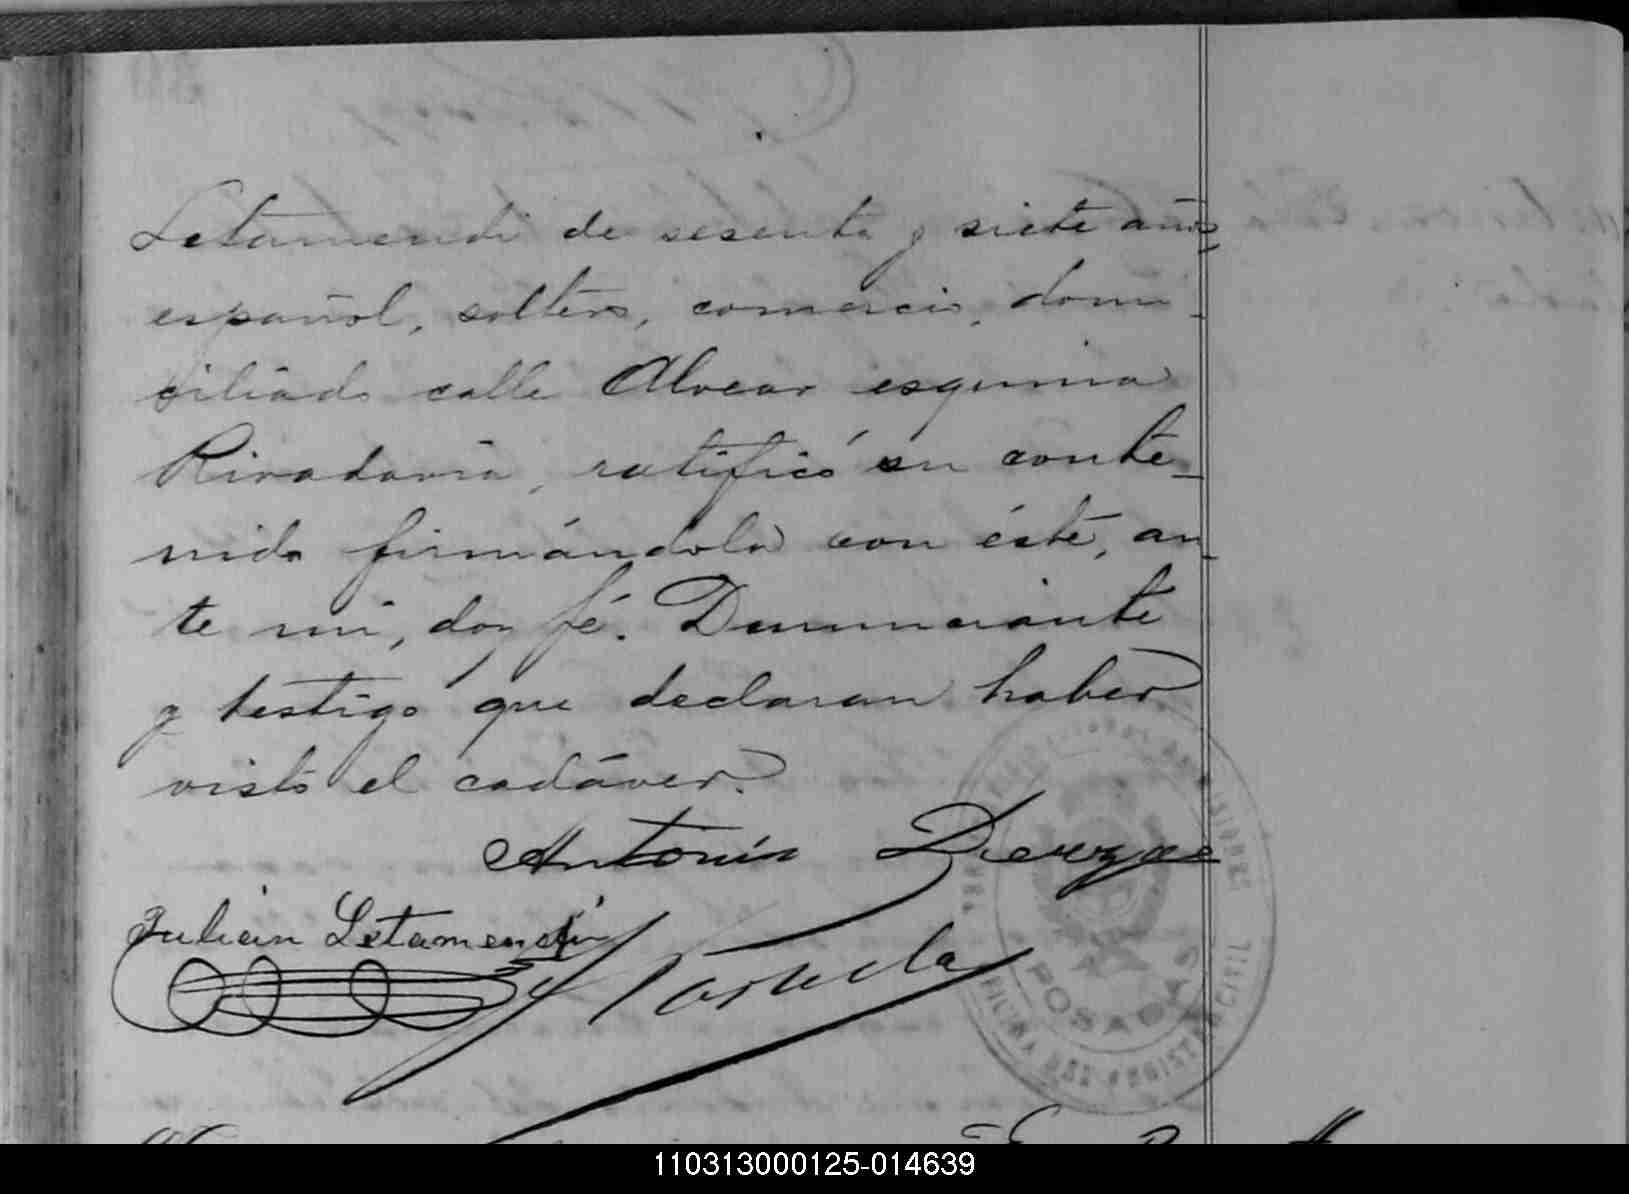 Letamendi de sesenta y siete años,
español, soltero, comercio, domi-
ciliado calle Alvear esquina
Rivadavia, ratificó su conte-
nido firmándola con éste, an-
te mi, doy fé. Denunciante
y testigo que declaran haber
visto el cadáver.
Antonio
Julian Letamendi
POSADAS
OFICINA DEL REGISTRO CIVIL
110313000125-014639